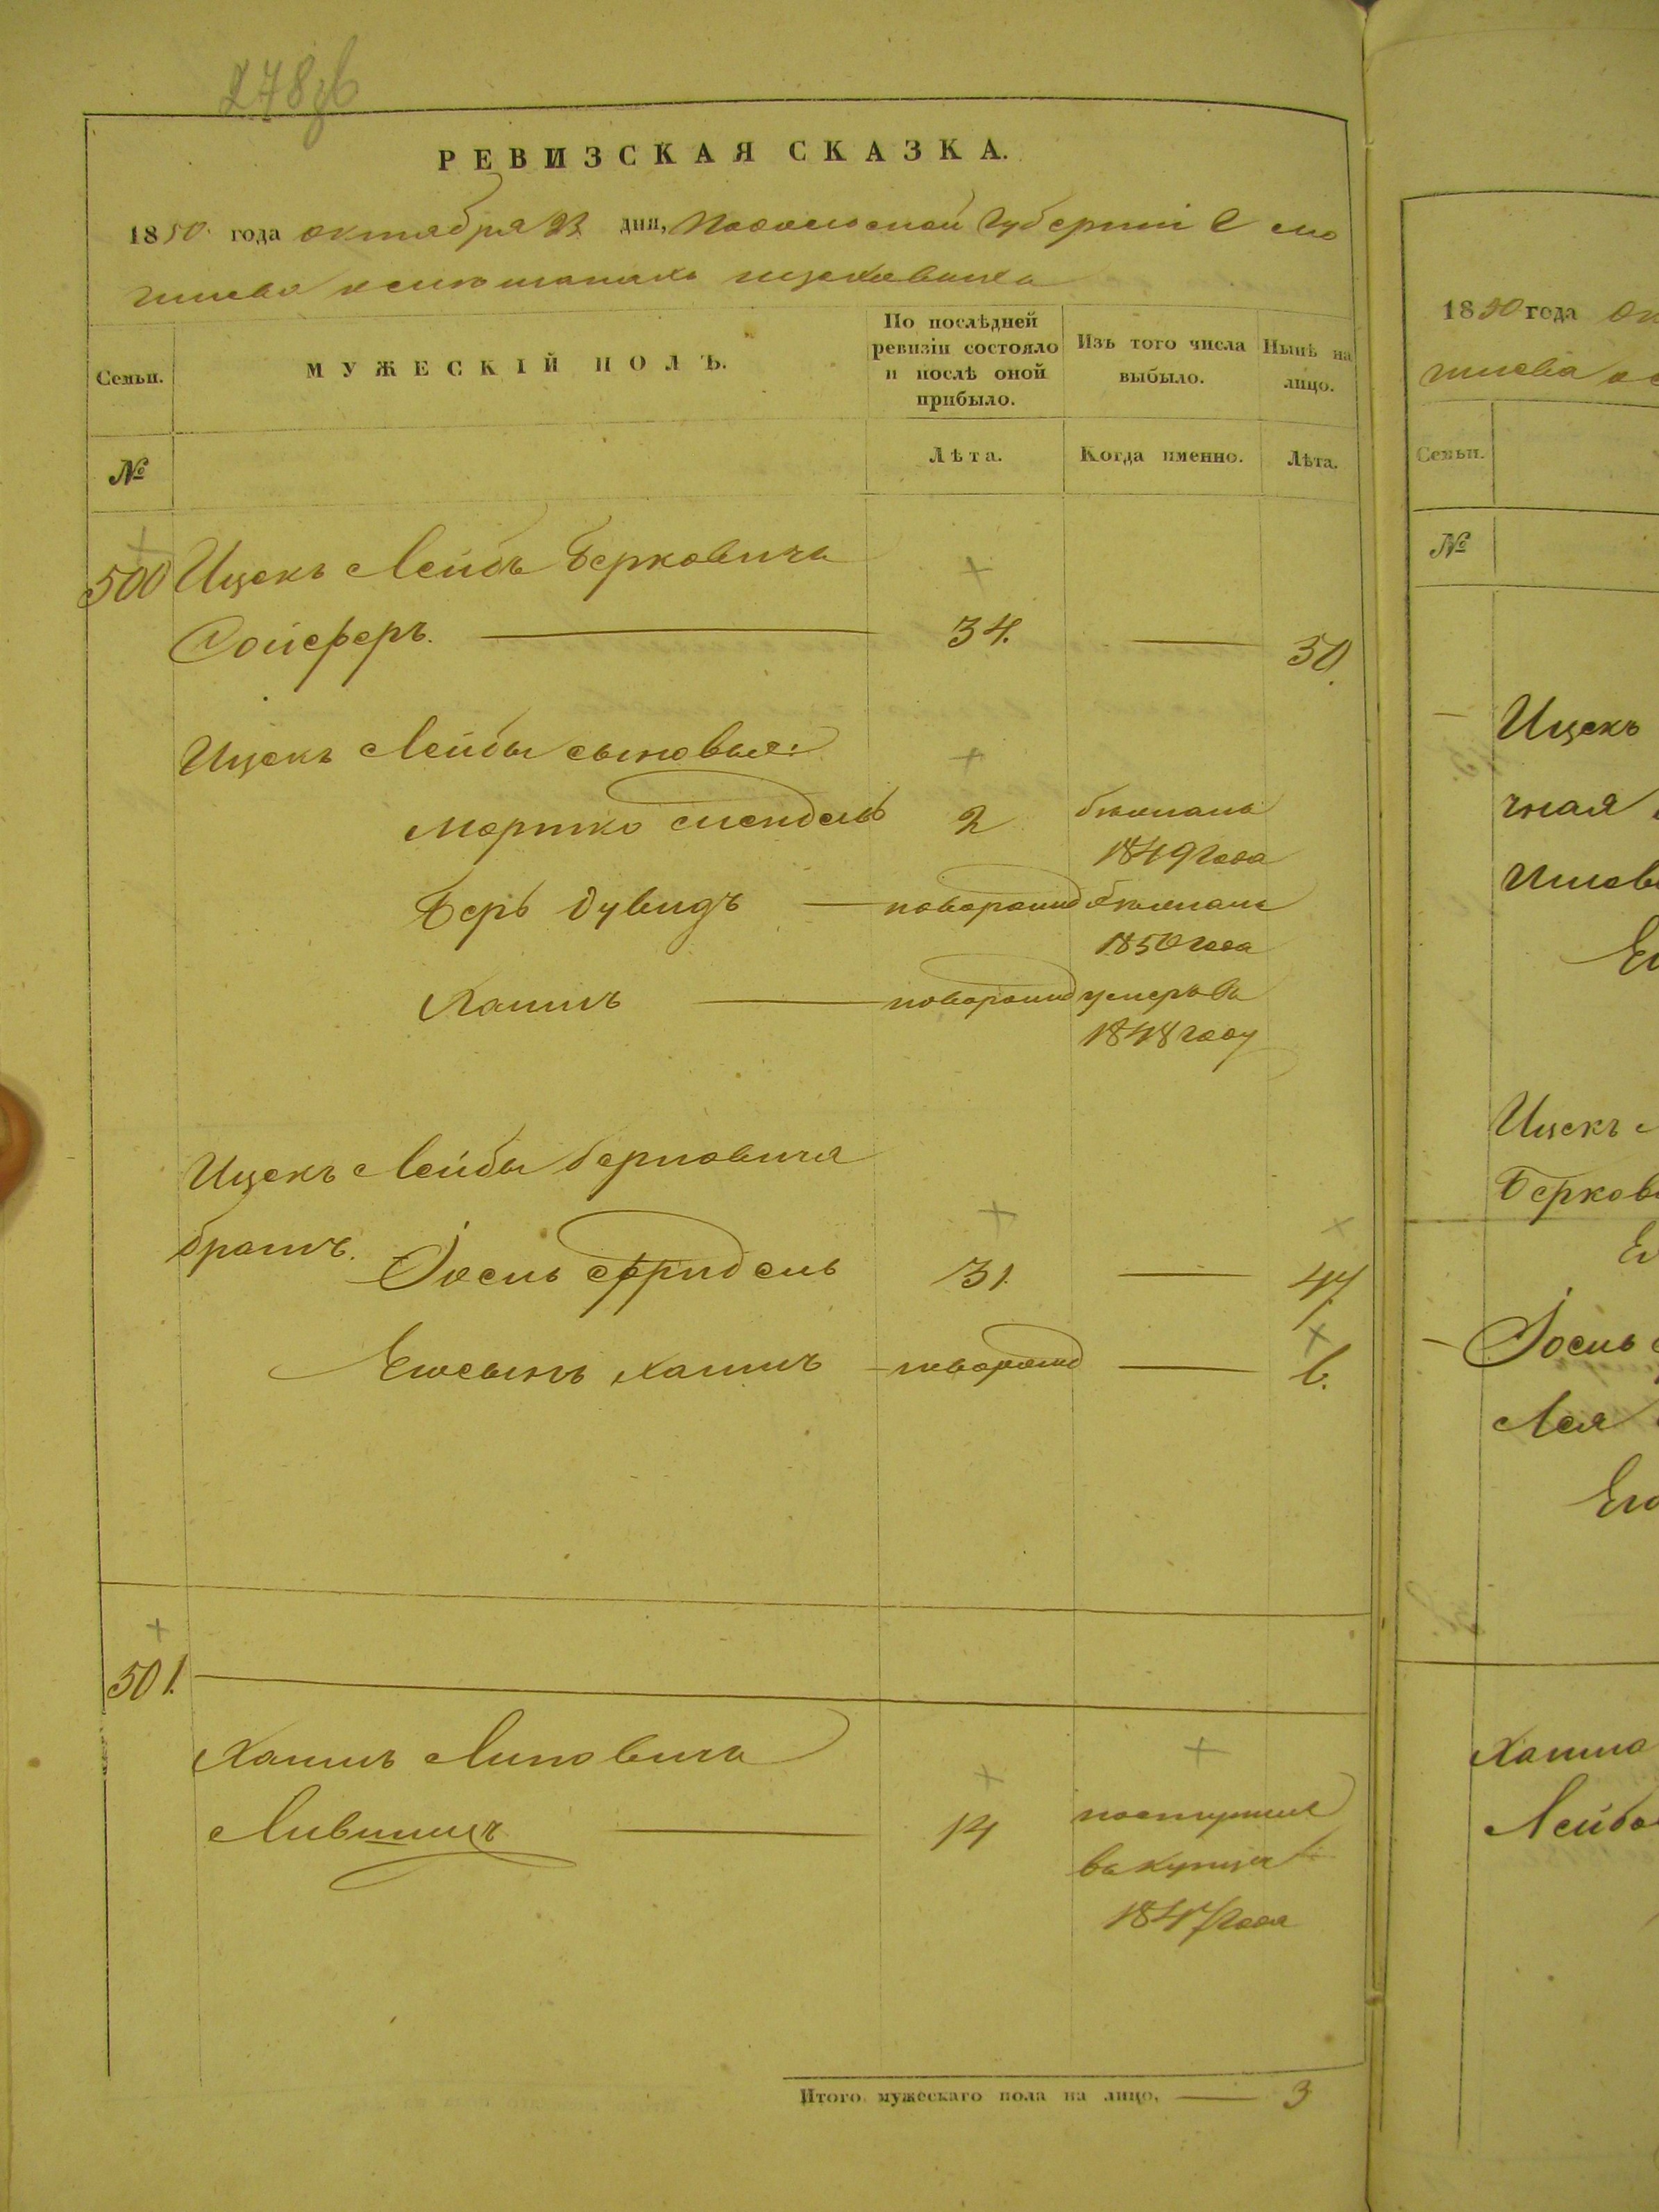 278об
РЕВИЗСКАЯ СКАЗКА.
1850 года октября 23 дня, Подольской Губерніи г мо
гилева о мѣщанахъ
Семьи.
МУЖЕСКІЙ ПОЛЪ.
По послѣдней ревизіи состояло и послѣ оной прибыло.
Изъ того числа выбыло.
Нынѣ на лицо.
№
Лѣта.
Когда именно.
Лѣта.
500 Ицекъ Лейбъ Берковичъ
Сойферъ. 34. 50.
Ицекъ Лейбы сыновья:
Мортко Мендель 2
1849 года
Беръ Дувидъ новорожд
1850 года
Хаимъ новорожд умеръ въ
1848 году
Ицекъ Лейбы Берковича
братъ.
Іосль Фридель 31. 47.
Его сынъ Хаимъ новорожд 6.
501.
Хаимъ Липовичъ
Лившицъ 14 поступилъ
въ купцы
1847 года
Итого мужескаго пола на лицо, 3
1850 года ок
гилева о
Семьи.
№
Ицекъ
Ицекъ
Берков
Іосль
Лея
Его
Хаима
Лейбо